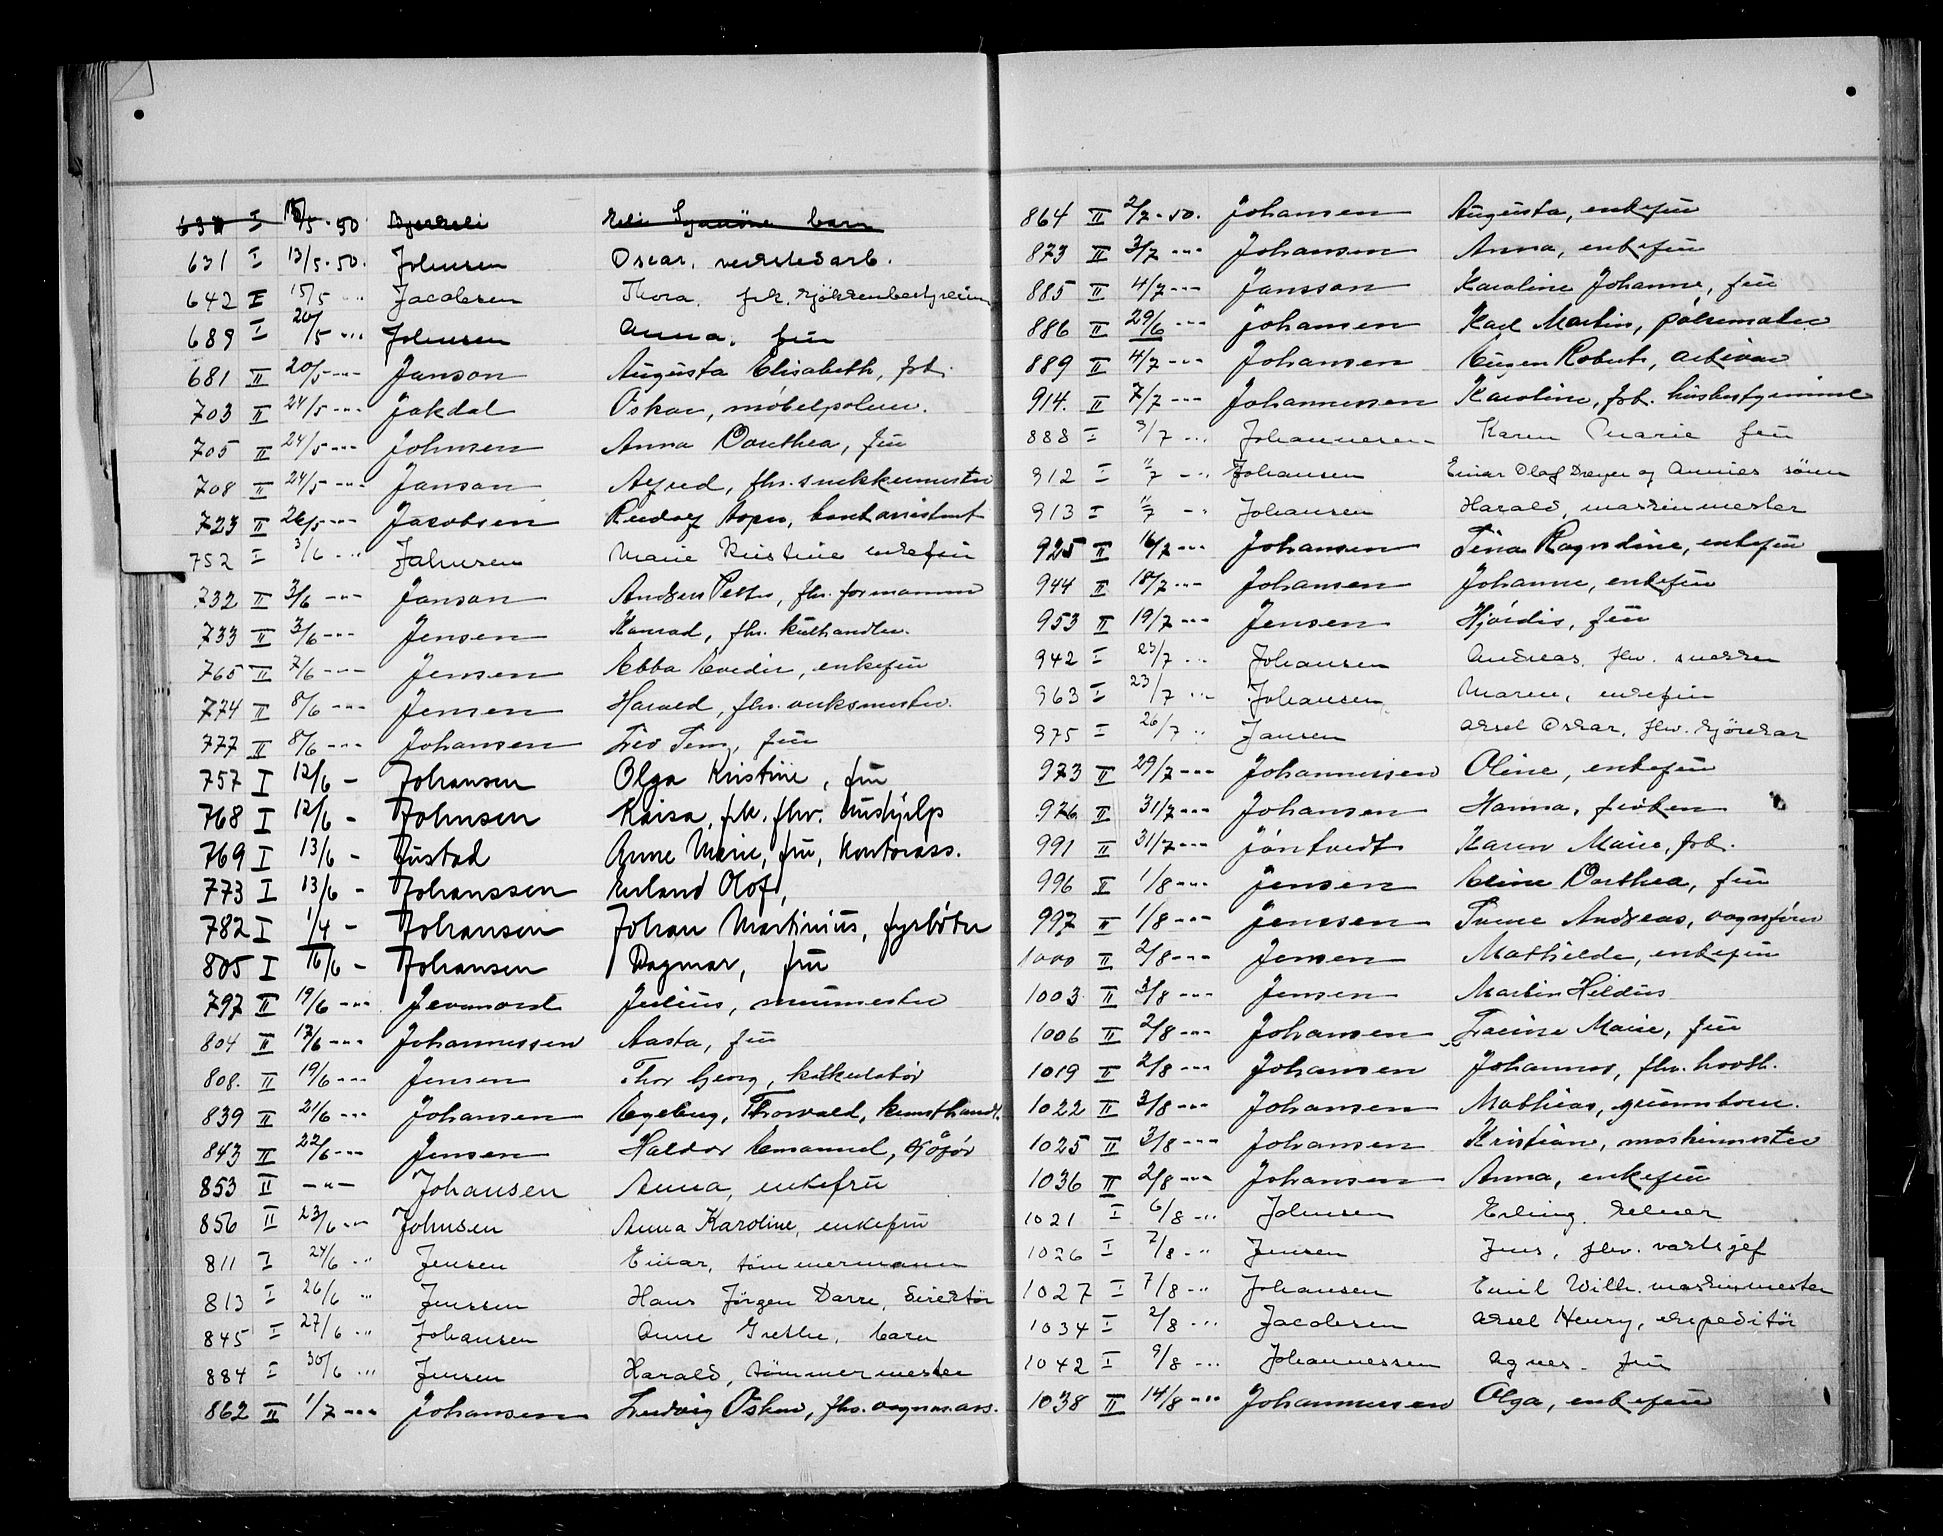 631 I 13/5-50. Johnsen Oscar, verkstedarb.
642 I 15/5 -"- Jacobsen Thora, frk.
689 I 20/5 -"- Johnsen Anna, fru
681 II 20/5 -"- Janson Augusta Elisabeth, frk.
703 II 24/5 -"- Jakdal Oskar, møbelpolerer.
705 II 24/5 -"- Johnsen Anna Dorthea, fru
708 II 24/5 -"- Janson Alfred, fhv. snekkermester
723 II 26/5 -"- Jacobsen Rudolf
752 I 3/6 -"- Johnsen Marie Kristine enkefru
732 II 3/6 -"- Janson Anders Petter, fhv. formann
733 II 3/6 -"- Jensen Konrad, fhv. kulhandler.
765 II 7/6 -"- Jensen Ebba, enkefru
774 II 8/6 -"- Jensen Harald, fhv. verksmester
777 II 8/6 -"- Johansen fru
757 I 12/6 - Johansen Olga Kristine, fru
768 I 12/6 - Johnsen Kaisa, frk. fhv. hushjelp
769 I 13/6 - Justad Anne Marie, fru, kontorass.
773 I 13/6 - Johanssen Erland Olof,
782 I 1/4 - Johansen Johan Martinius, fyrbøter
805 I 16/6 - Johansen Dagmar, fru
797 II 19/6 -"- Jevanord Julius, murmester
804 II 17/6 -"- Johannessen Aasta, fru
808. II 19/6 -"- Jensen Thor Georg, kalkulatør
839 II 21/6 -"- Johansen Engelbrg. Thorvald, kunsthandl.
843 II 22/6 -"- Jensen Haldor Emanuel, sjåfør
853 II -"- Johansen Anna, enkefru
856 II 23/6 -"- Johnsen Anna Karoline, enkefru
811 I 24/6 -"- Jensen Einar, tømmermann
813 I 26/6 -"- Jenssen Hans Jørgen Darre, direktør
845 I 27/6 -"- Johansen Anne Grethe, barn
884 I 30/6 -"- Jensen Harald, tømmermester
862 II 1/7 -"- Johansen Ludvig Oskar, fhv. vognm.ass.
864 II 2/7-50. Johansen Augusta, enkefru
873 II 3/7 -"- Johansen Anna, enkefru
885 II 4/7 -"- Jansson Karoline Johanne, fru
886 II 29/6 -"- Johansen Karl Martin, pølsemaker
889 II 4/7 -"- Johansen Eugen Robert, arkivar
914. II 7/7 -"- Johannessen Karoline, frk. husbestyrerinne
888 I /7 -"- Johannesen Karen Marie fru
912 I 11/7 -"- Johansen Einar Olaf Dreyer og Annies sønn
913 I 11/7 -"- Johansen Harald, maskinmester
925 II 16/7 -"- Johansen Tina Ragndine, enkefru
944 II 18/7 -"- Johansen Johanne, enkefru
953 II 19/7 -"- Jensen Hjørdis, fru
942 I 23/7 -"- Johansen Andreas, fhv. snekker
963 I 23/7 -"- Johansen Maren, enkefru
975 I 26/7 -"- Jansen Aksel Oskar, fhv. kjørekar
973 II 29/7 -"- Johannessen Oline, enkefru
976 II 31/7 -"- Johansen Hanna, frøken
991 II 31/7 -"- Jøntvedt Karen Marie, frk.
996 II 1/8 -"- Jensen Eline Dorthea, fru
997 II 1/8 -"- Jenssen Andreas, vognfører
1000 II 2/8 -"- Jensen Mathilde, enkefru
1003 II 3/8 -"- Jensen Martin Hildus
1006 II 2/8 -"- Johansen Lovise Marie, fru
1019 II 2/8 -"- Johansen Johannes, fhv. hovb.
1022 II 3/8 -"- Johansen Mathias, grunnborer.
1025 II 3/8 -"- Johansen Kristian, maskinmester
1036 II 2/8 -"- Johansen Anna, enkefru
1021 I 6/8 -"- Johnsen Erling. kelner
1026 I 7/8 -"- Jensen Jens, fhv. vaktsjef
1027 I 7/8 -"- Johansen Emil Wilh. maskinmester
1034 I 2/8 -"- Jacobsen Aksel Henry, ekspeditør
1042 I 9/8 -"- Johannessen Agnes. fru
1038 II 14/8 -"- Johannessen Olga, enkefru